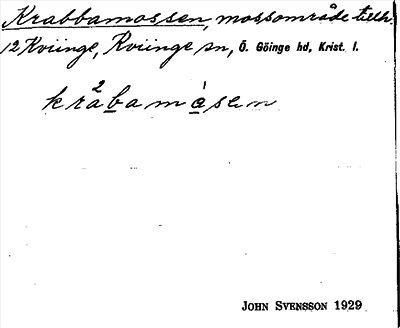 Krabbamossen, mossområde tillh.
12 Kviinge, Kviinge sn, Ö. Göinge hd, Krist. l.
krabamåsen
JOHN SVENSSON 1929